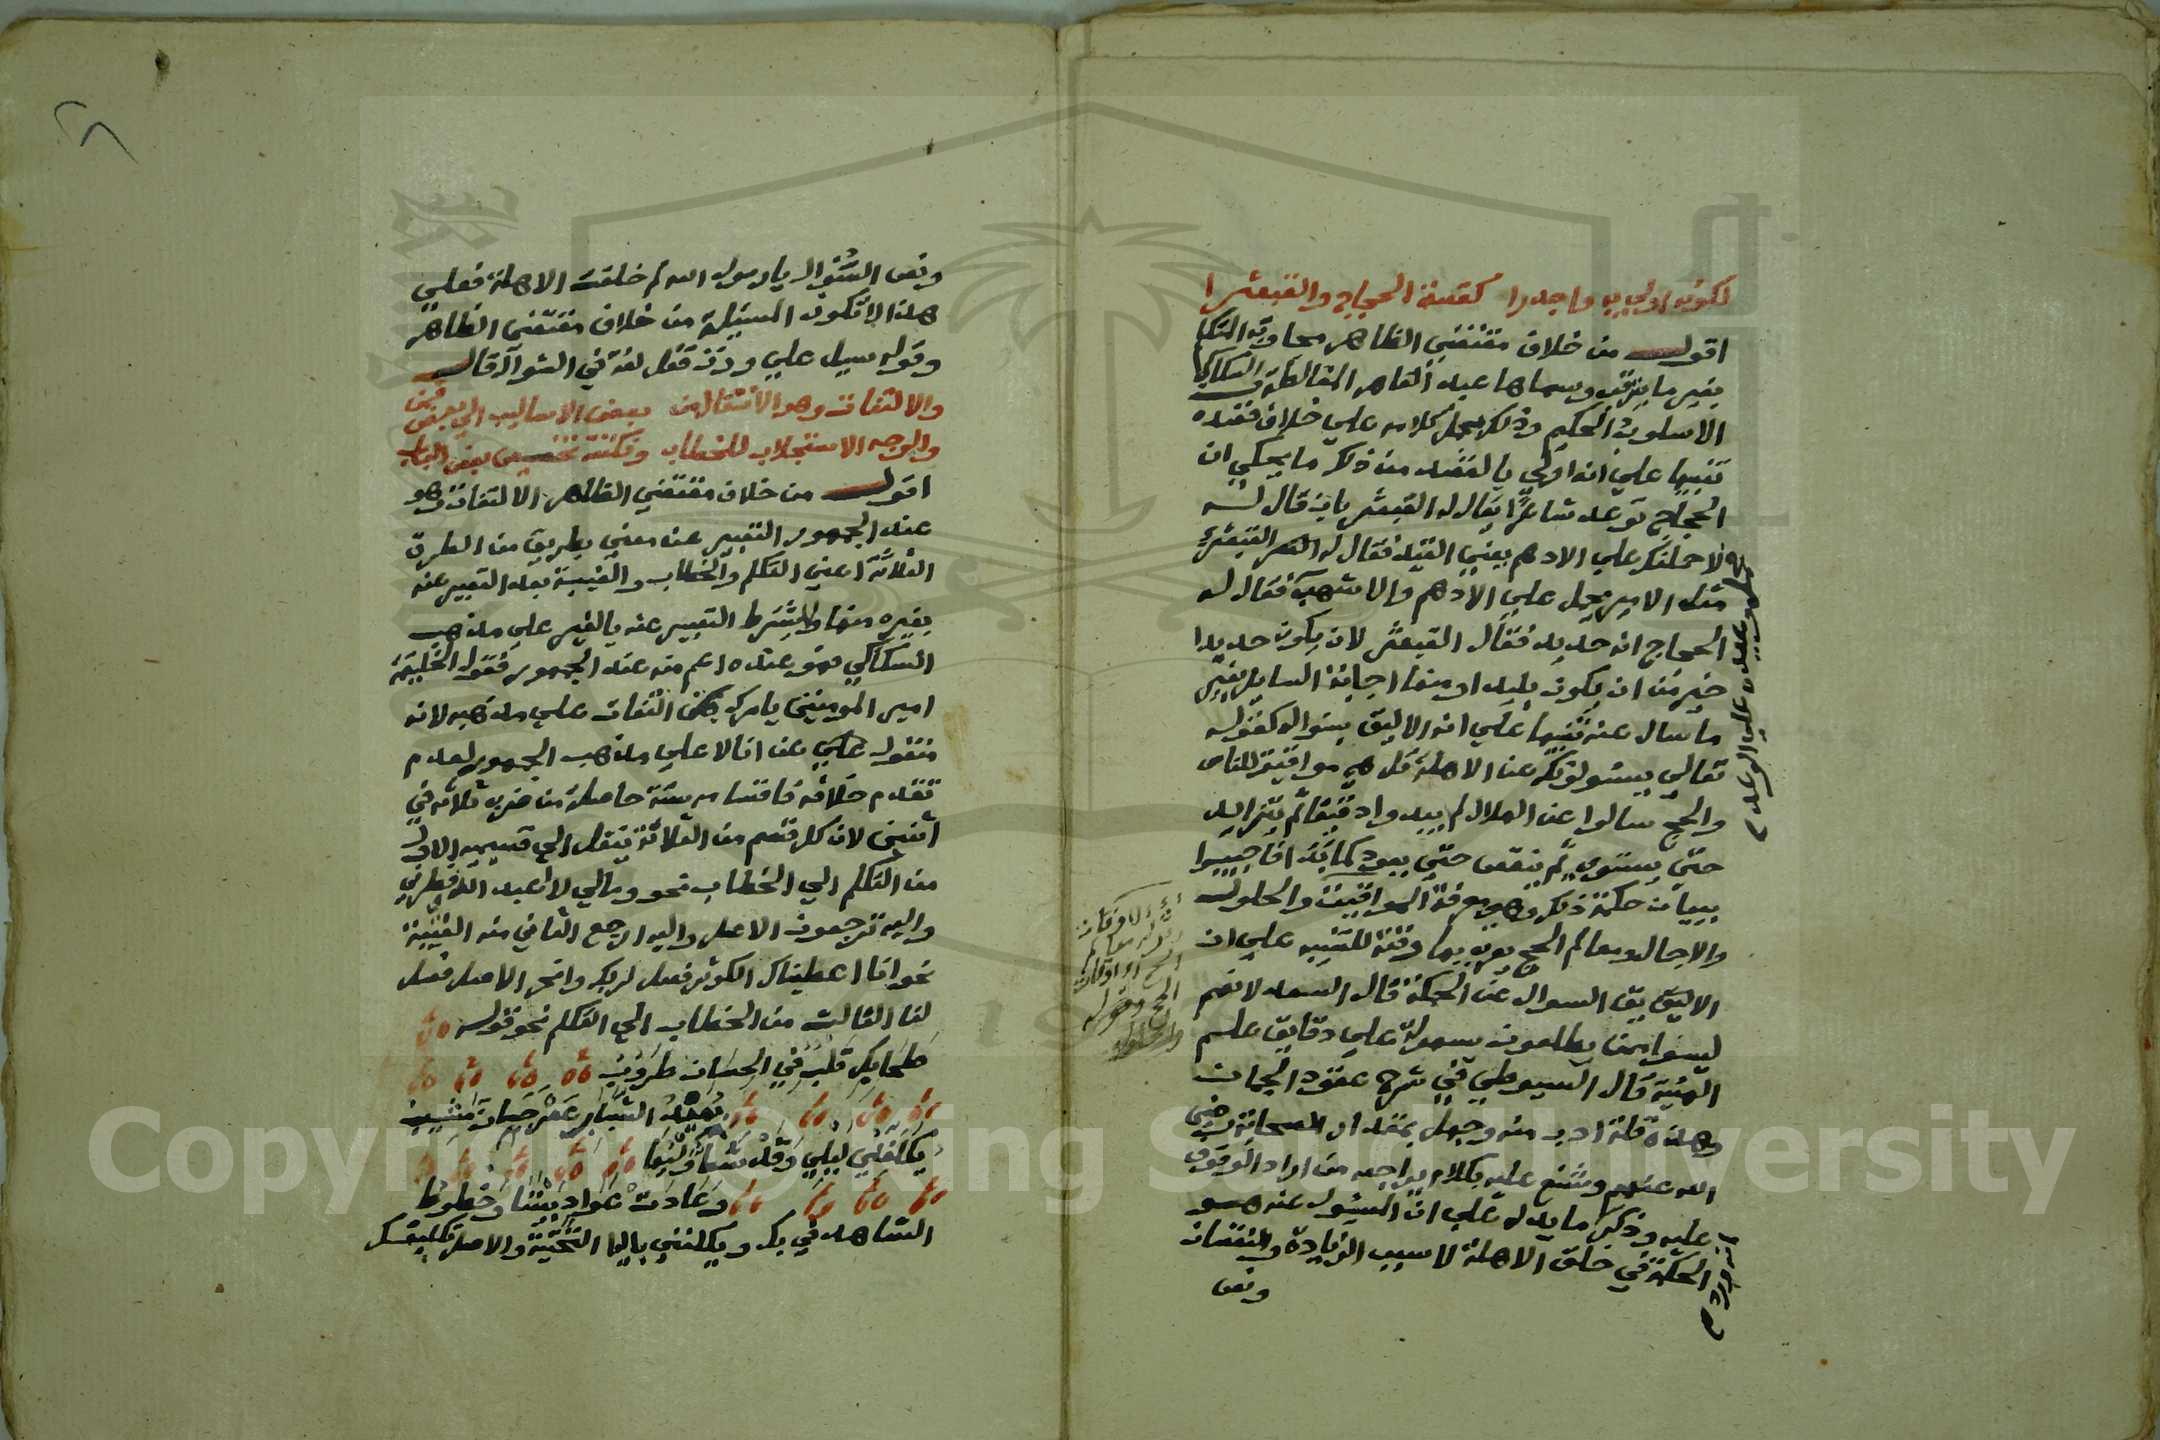 لكونه اولي به واجدرا كقصة الحجاج والقبعثرا
اقول من خلاف مقتضي الظاهر مجاوبة المتكلم
بغير ما يترقب وسماها عبد القاهر المغالطة والسكاكي
الاسلوب الحكيم وذلك بحمل كلامه علي خلاف قصده
تنبيها علي انه اولي بالقصد من ذلك ما يحكي ان
الحجاج توعد شاعرا يقال له القبعثري بان قال له
لاحملنك علي الادهم يعني القيد فقال له القبعثري
مثل الامير يحمل علي الادهم والاشهب فقال له
الحجاج انه حديد فقال القبعثري لان يكون حديدا
خير من ان يكون بليدا ومنها اجابة السايل بغير
ما سال عنه تنبيها علي انه الاليق بسواله كقوله
تعالي يسئلونك عن الاهلة قل هي مواقيت للناس
والحج سالوا عن الهلال لم يبدوا دقيقا ثم يتزايد
حتي يستوي ثم ينقص حتي يعود كما بدا فاجيبوا
ببيان حكمة ذلك وهي معرفة المواقيت والحلول
والاجال ومعالم الحج يعرف بها وقته للتنبيه علي ان
الاليق بهم السوال عن الحكمة قال السعد لانهم
ليسوا ممن يطلعون بسهولة علي دقايق علم
الهيئة قال السيوطي في شرح عقود الجمان
وهذه قلة ادب منه وجهل بمقدار الصحابة رضي
الله عنهم وشنع عليه بكلام يراجعه من اراد الوقوف
عليه وذكر ما يدل علي ان المسئول عنه هو
الحكمة في خلق الاهلة لا سبب الزيادة والنقصان
ونص
ونص السوال يا رسول الله لم خلقت الاهلة فعلي
هذا لا تكون المسئلة من خلاف مقتضي الظاهر
وقوله سيل علي وزن فعل لغة في السوال قال
والالتفات وهو الانتقال من بعض الاساليب الي بعض قمن
والوجه الاستجلاب للخطاب ونكتة تخص بعض الباب
اقول من خلاف مقتضي الظاهر الالتفات وهو
عند الجمهور التعبير عن معني بطريق من الطرق
الثلاثة اعني التكلم والخطاب والغيبة بعد التعبير عنه
بغيره منها ولا يشترط التعبير عنه بالغير علي مذهب
السكاكي فهو عنده اعم منه عند الجمهور فقول الخليفة
امير المومنين يامرك بكذا التفات علي مذهبه لانه
منقول عن انا لا علي مذهب الجمهور لعدم
تقدم خلافه فاقسامه ستة حاصلة من ضرب ثلاثة في
اثنين لان كل قسم من الثلاثة ينقل الي قسيميه الاول
من التكلم الي الخطاب نحو ومالي لا اعبد الذي فطرني
واليه ترجعون الاصل واليه ارجع الثاني منه الي الغيبة
نحو انا اعطيناك الكوثر فصل لربك وانحر الاصل فصل
لنا الثالث من الخطاب الي التكلم نحو قوله
طحابك قلب في الحسان طروب
بعيد الشباب عصر حان مشيب
يكلفني ليلي وقد شط وليها
وعادت عواد بيننا وخطوب
الشاهد في بك ويكلفني باليا التحتية والاصل يكلفك